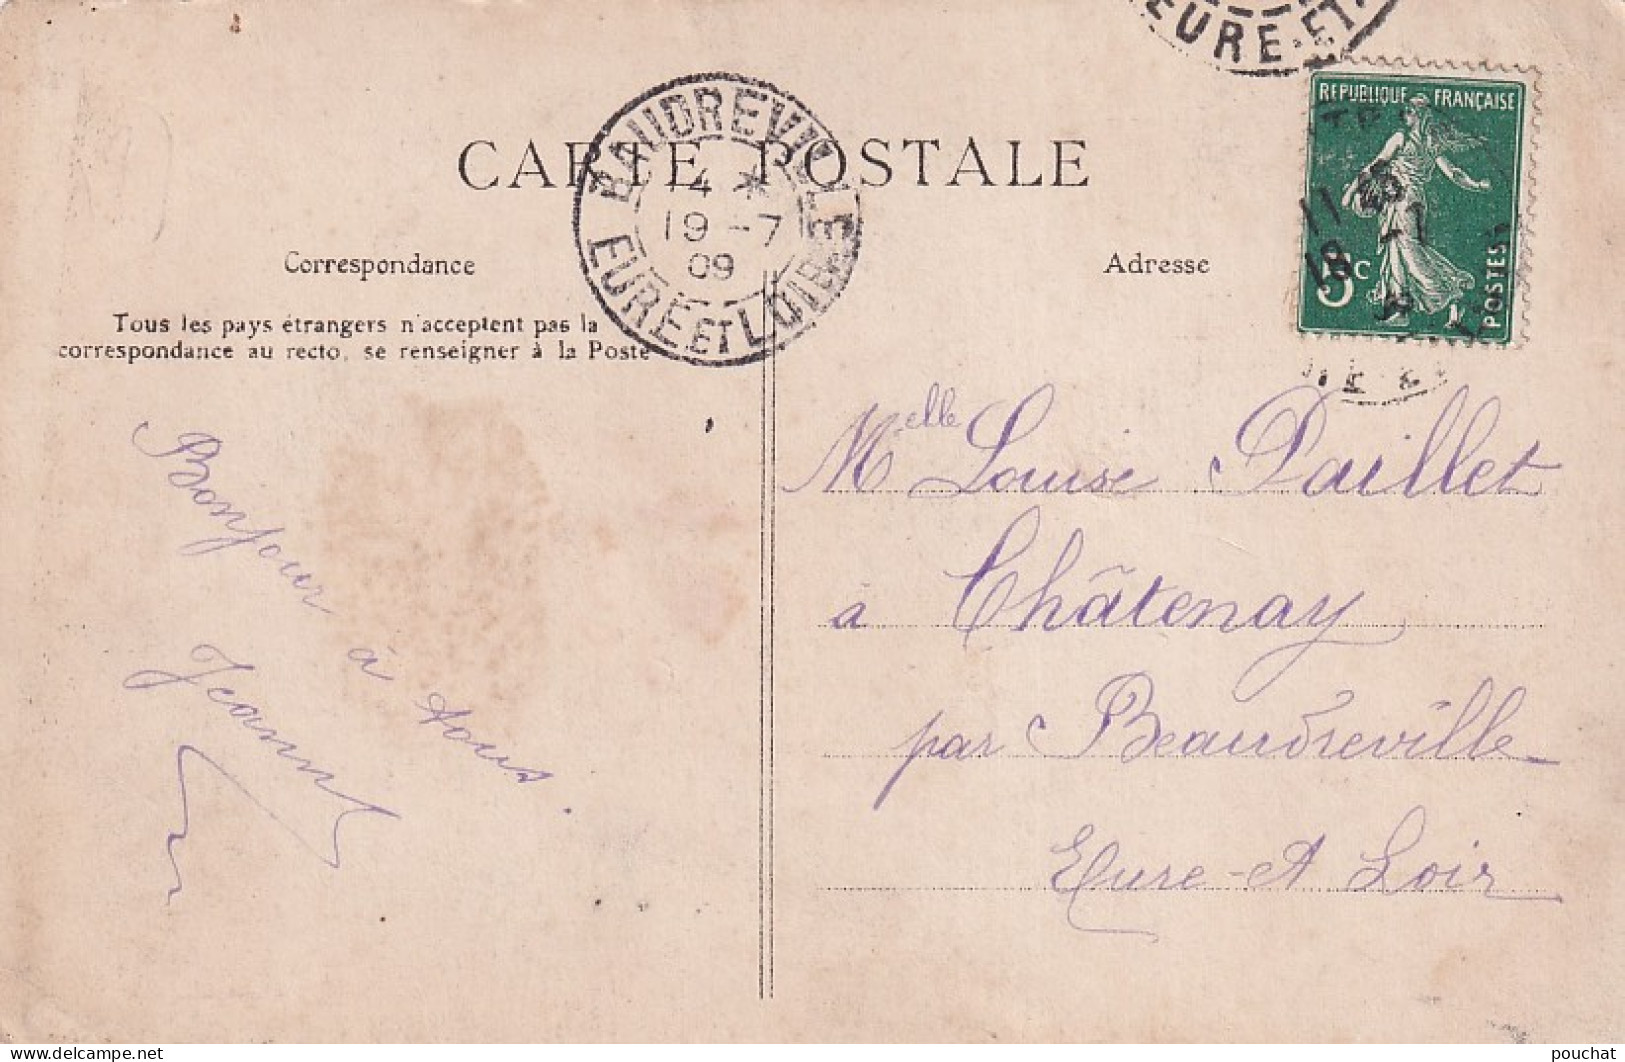 EURE-ET-
REPUBLIQUE FRANÇAISE
POSTES
5c
11 45
18 -7
BAUDREVILLE
4 *
19 -7
09
EURE ET LOIR
CARTE POSTALE
Correspondance
Tous les pays étrangers n'acceptent pas la
correspondance au recto, se renseigner à la Poste
Bonjour à tous.
Adresse
Melle Louise Paillet
à Châtenay
par Beaudreville
Eure-et Loir
pouchat